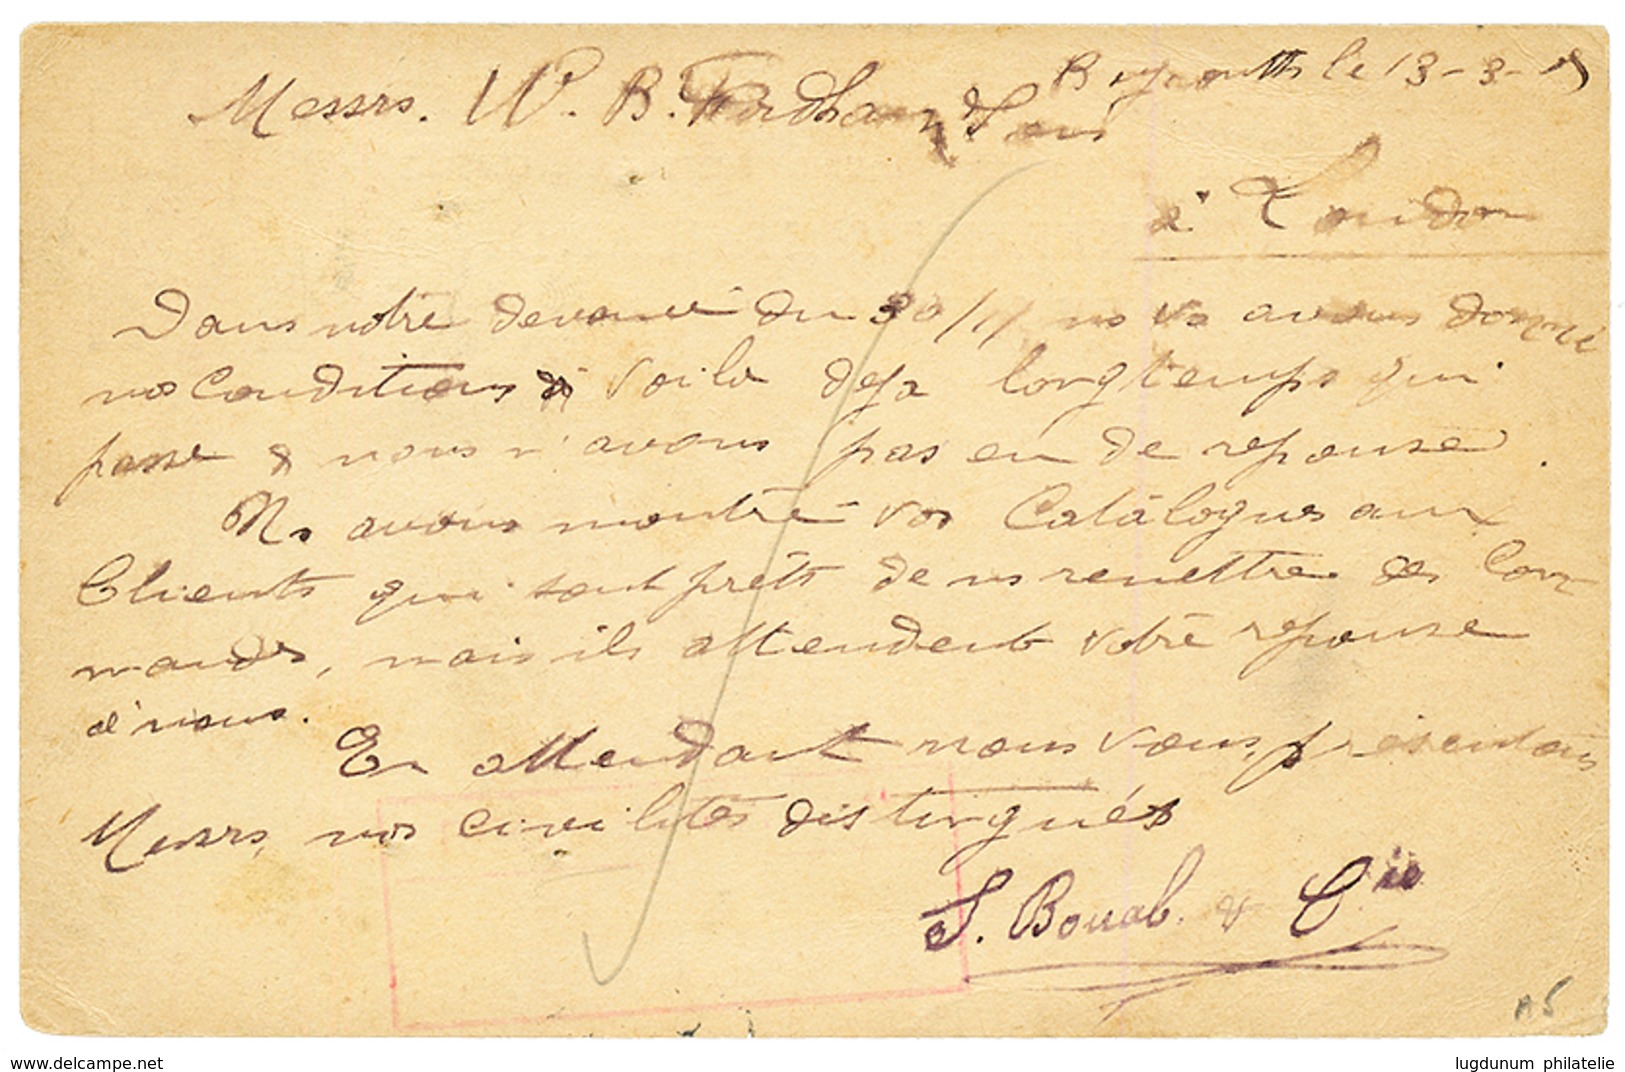 Beyrouth le 13-3-
Messrs. W. B. Fordham & Sons
à London
Dans notre devancé du 30/11 ns vs avons donné
nos conditions & voila deja longtemps qui
passe & nous n'avons pas eu de reponse.
Ns avons montré vos Catalogues aux
Clients qui sont prêts de ns remettre des Com
mandes, mais ils attendent votre reponse
à nous.
En attendant nous vous présentons
Messrs, nos civilités distingués
S. Bouab. & Cie
A5
www.delcampe.net
lugdunum philatelie